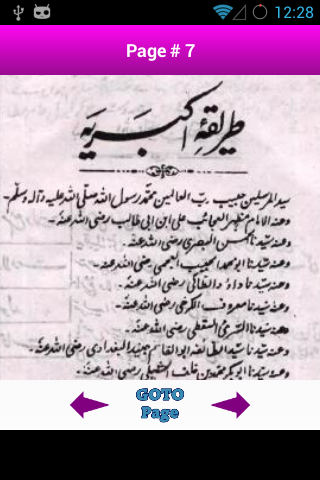 12:28
Page # 7
طریقۂ اکبریہ
سید المرسلین حبیب رب العالمین محمد رسول اللہ صلی اللہ علیہ وآلہ وسلم۔
وعنہ الامام مظہر العجائب علی ابن ابی طالب رضی اللہ عنہ۔
وعنہ سیدنا حسن البصری رضی اللہ عنہ۔
وعنہ سیدنا ابو محمد حبیب العجمی رضی اللہ عنہ۔
وعنہ سیدنا داؤد الطائی رضی اللہ عنہ۔
وعنہ سیدنا معروف الکرخی رضی اللہ عنہ۔
وعنہ سیدنا السری السقطی رضی اللہ عنہ۔
وعنہ سیدنا سید الطائفہ ابو القاسم جنید البغدادی رضی اللہ عنہ۔
وعنہ سیدنا ابو بکر محمد بن خلف الشبلی رضی اللہ عنہ۔
GOTO
Page